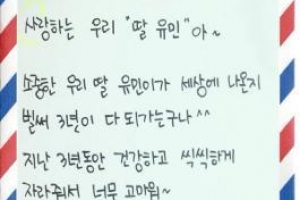 사랑하는 우리 "딸 유민"아~
소중한 우리 딸 유민이가 세상에 나온지
벌써 3년이 다 되가는구나^^
지난 3년동안 건강하고 씩씩하게
자라줘서 너무 고마워~